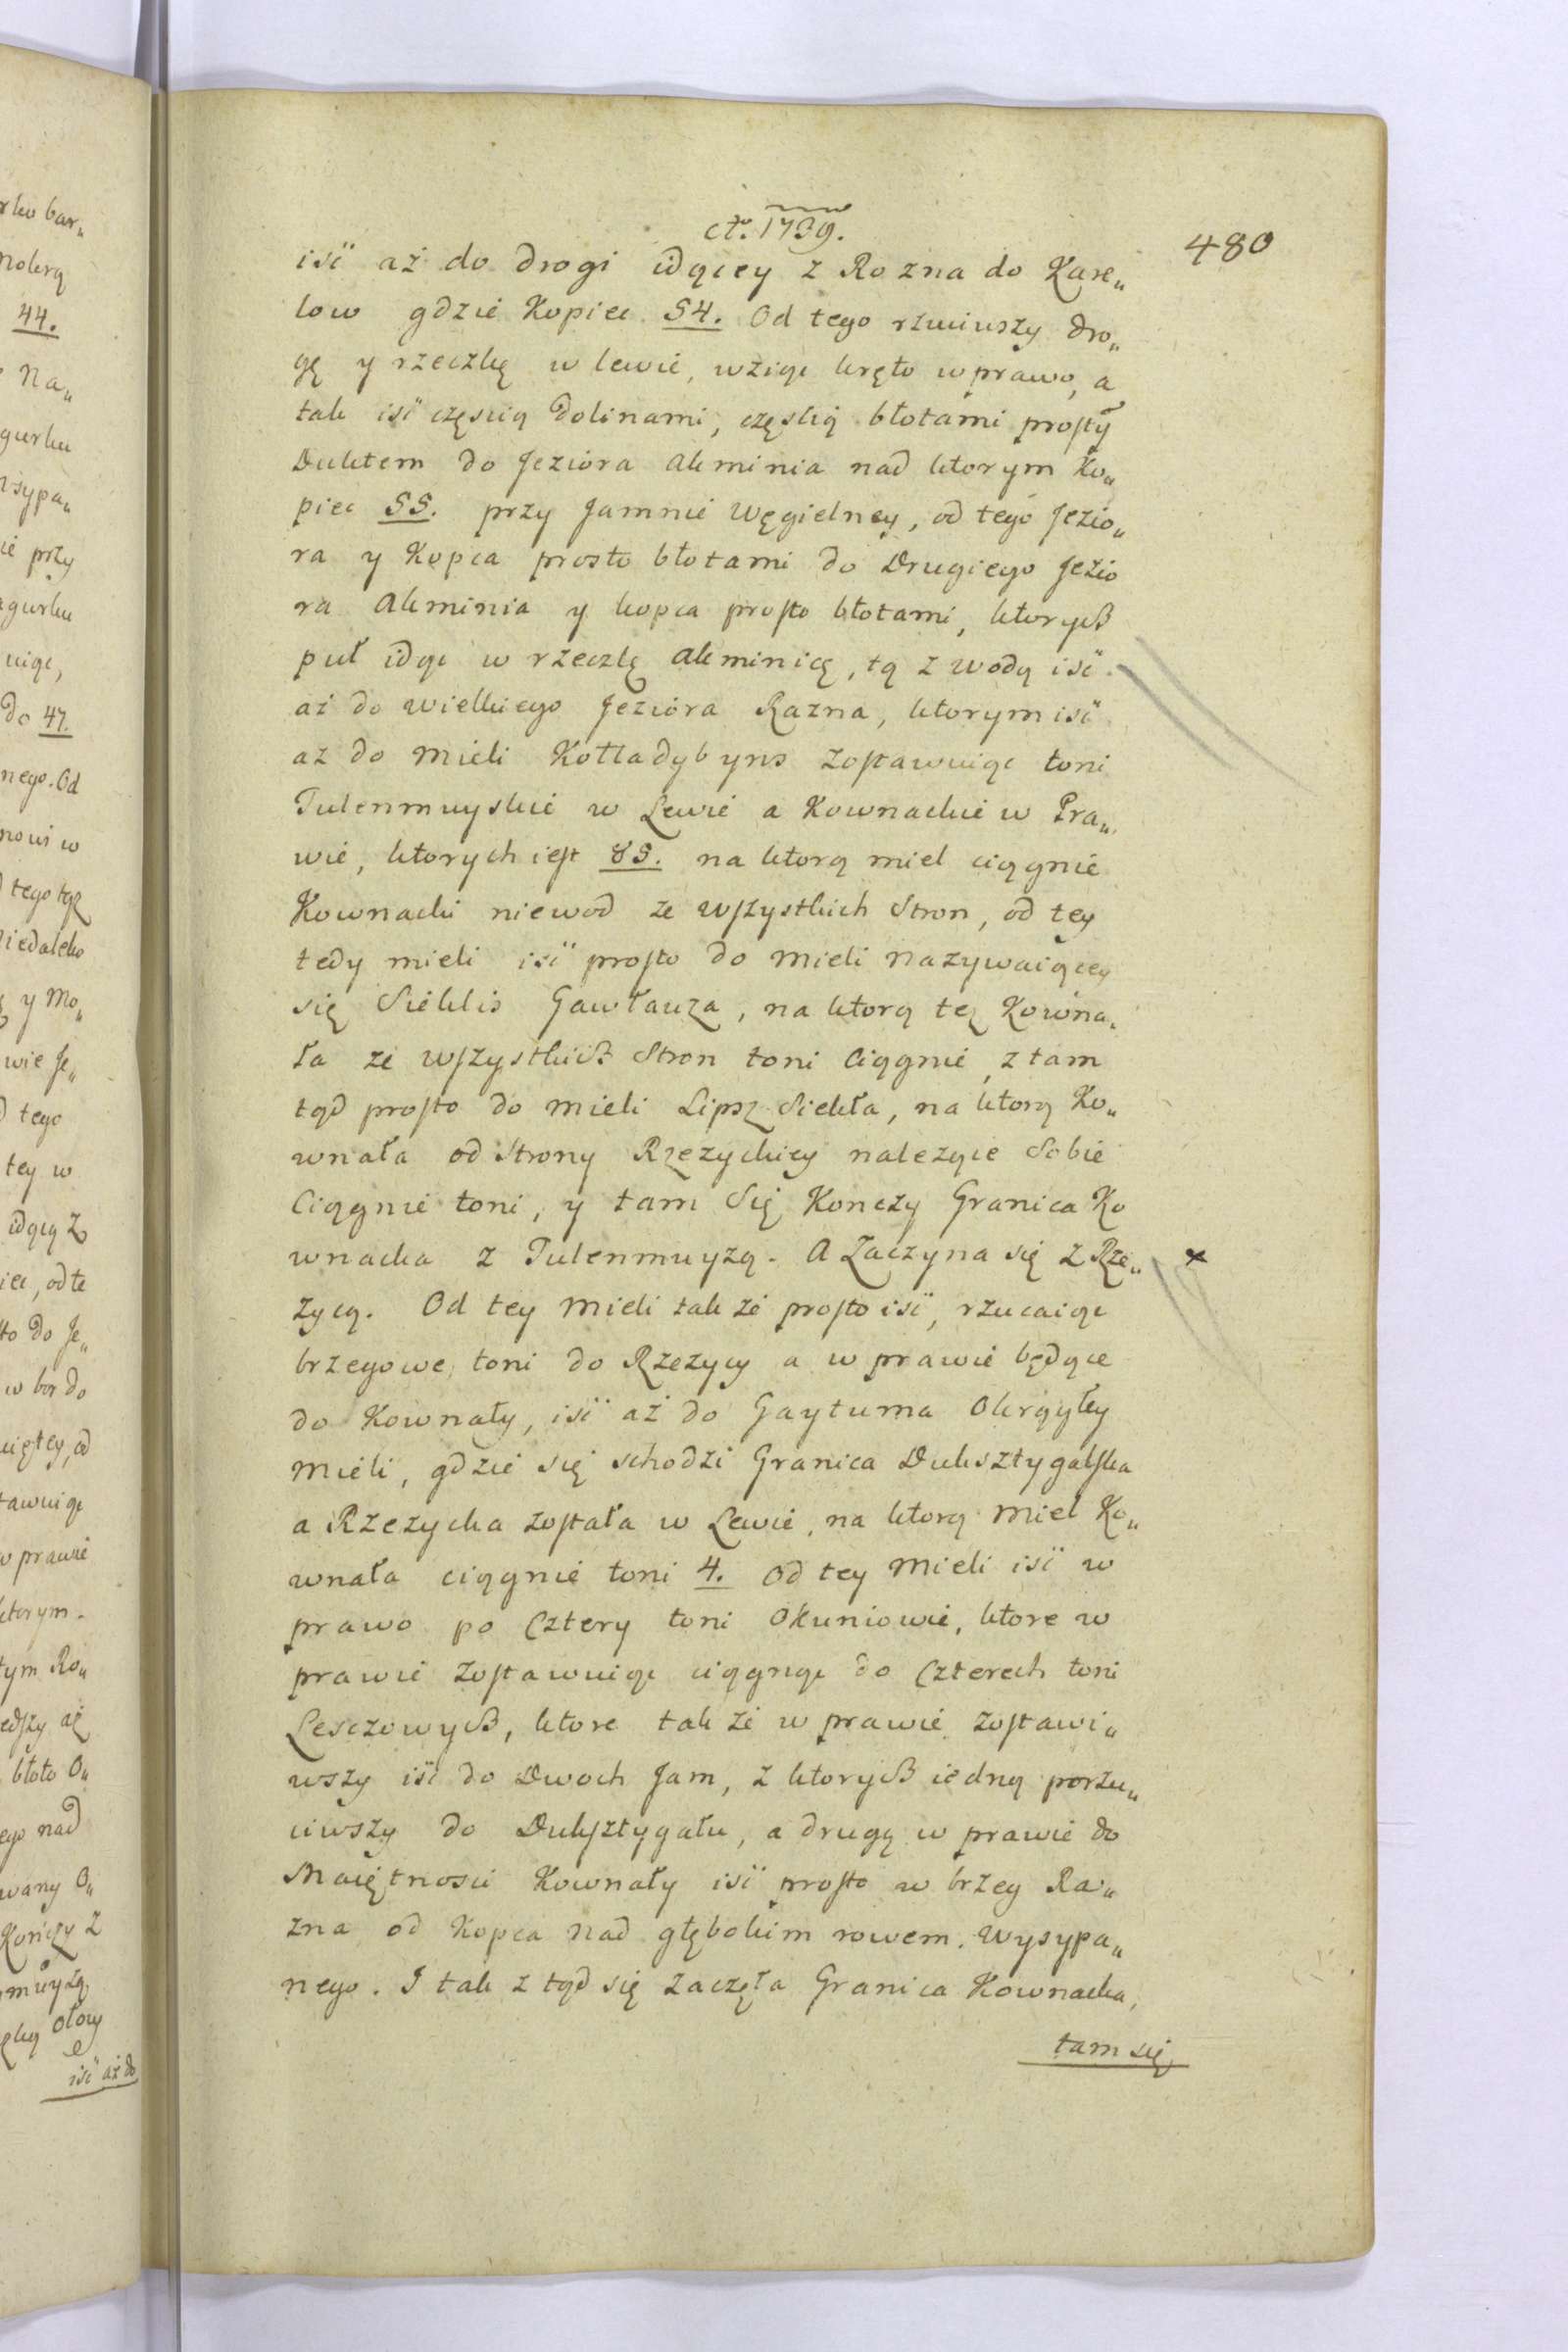 Ao. 1739.
480
iść aż do drogi idącey z Rozna do Kare„
low gdzie Kopiec 54. Od tego rzuciwszy dro„
gę y rzeczkę w lewie, wziąc kręto w prawo, a
tak iść częscią dolinami, częscią błotami prosty
Duktem do Jeziora Akminia nad ktorym Ko„
piec 55. przy Jamnie Węgielney, od tego Jezio„
ra y Kopca prosto błotami do Drugiego Jezio
ra Akminia y kopca prosto błotami, ktorych
puł idąc w rzeczkę Akminicę, tą z wodą iść
aż do wielkiego Jeziora Razna, ktorym iść
aż do mieli Kotladybyns zostawuiąc toni
Tulenmuyskie w Lewie a Kownackie w Pra„
wie, ktorych iest 85. na ktorą miel ciągnie
Kownacki niewod ze wszystkich Stron, od tey
tedy mieli iść prosto do mieli nazywaiącey
się Sieklis Gawłauza, na ktorą tez Kowna„
ła ze wszystkich Stron toni ciągnie, z tam
tąd prosto do mieli Lipsz Siekła, na ktorą Ko„
wnała od Strony Rzezyckiey nalezące Sobie
Ciągnie toni, y tam Się Konczy Granica Ko
wnacka z Tulenmuyzą. A Zaczyna się z Rze„
zycą. Od tey mieli takze prosto iść, rzucaiąc
brzegowe toni do Rzezycy a w prawie będące
do Kownały, iść aż do Gaytuma Okrągłey
mieli, gdzie się schodzi Granica Duksztygalska
a Rzezycka została w Lewie, na ktorą miel Ko„
wnała ciągnie toni 4. Od tey Mieli iść w
prawo po Cztery toni Okuniowie, ktore w
prawie zostawuiąc ciągnąc do Czterech toni
Lesczowych, ktore takze w prawie zostawi„
wszy iść do Dwoch Jam, z ktorych iedną porzu„
ciwszy do Duksztygału, a drugą w prawie do
Maiętnosci Kownały iść prosto w brzeg Ra„
zna od Kopca nad głębokim rowem. Wysypa„
nego. I tak z tąd się zaczęła Granica Kownacka,
tam się